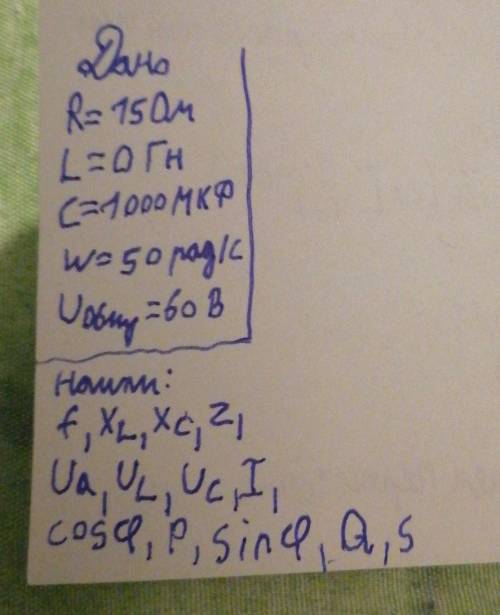 Дано
R=15Ом
L=0 Гн
C=1000мкФ
w=50 рад/с
Uобщ=60 В
Найти:
f, XL, XC, Z,
Ua, UL, UC, I,
cosφ, P, sinφ, Q, S